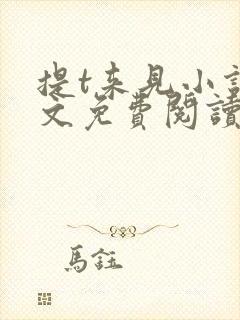 提t来见小
文免費閱讀
馬鈺